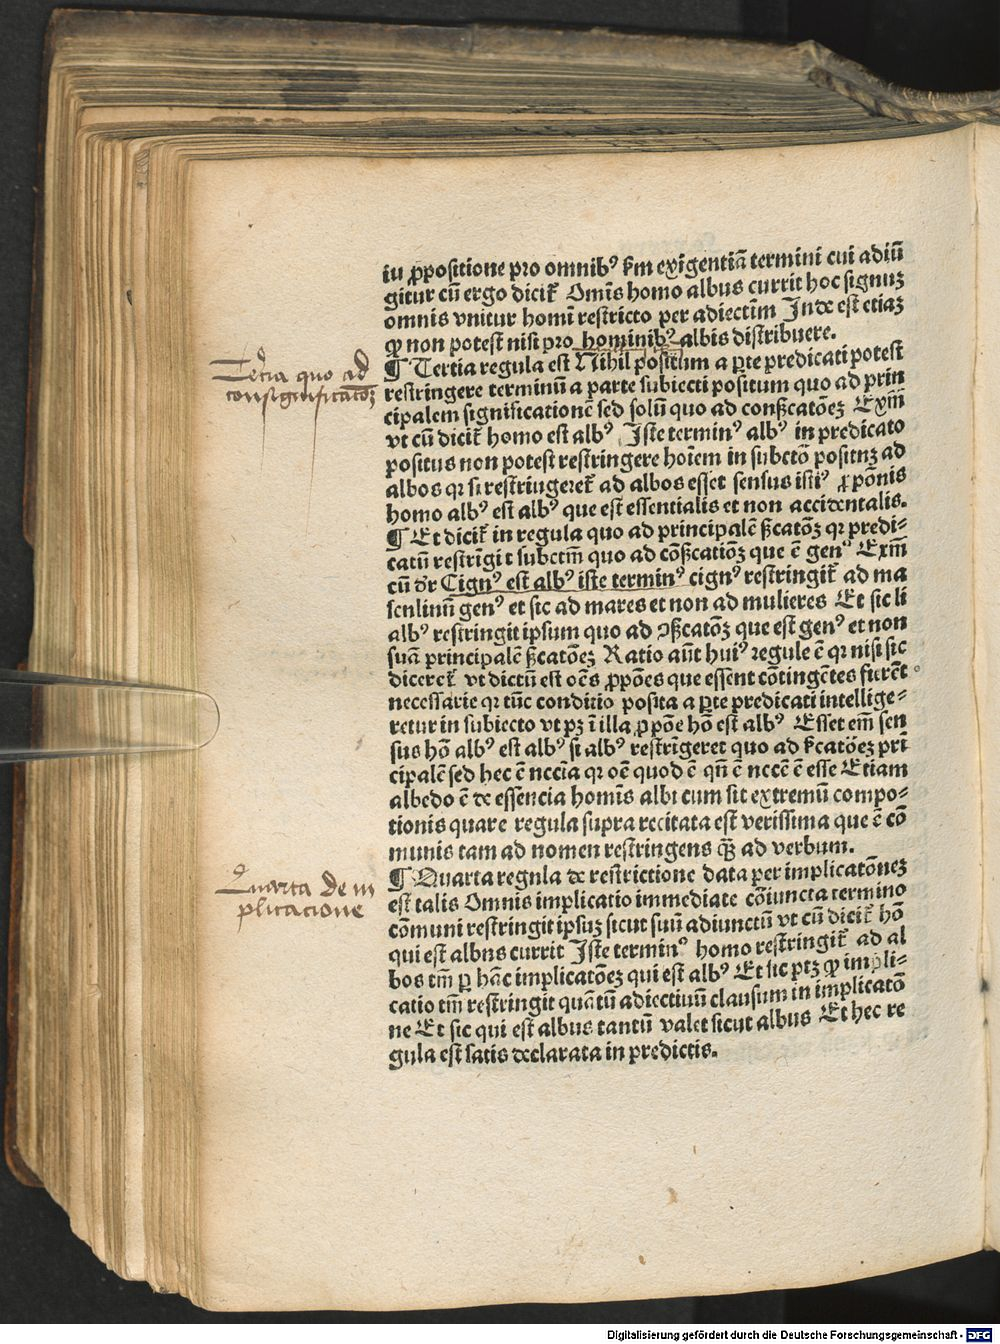 iu ꝓpositione pro omnibꝰ ẜm exigentiã termini cui adiũ
gitur cũ ergo dicit̃ Omĩs homo albus currit hoc signuꝫ
omnis vnitur homĩ restricto per adiectĩm Inde est etiaꝫ
ꝙ non potest nisi pro hominibꝰ albis distribuere.
¶ Tertia regula est Nihil positũm a ꝑte predicati potest
restringere terminũ a parte subiecti positum quo ad prin
cipalem significationẽ sed solũ quo ad conßcatõeꝫ Exm̃
vt cũ dicit̃ homo est albꝰ Iste terminꝰ albꝰ in predicato
positus non potest restringere hoĩem in subctõ positnꝫ ad
albos qꝛ si restriugeret̃ ad albos esset sensus istiꝰ ꝓpõnis
homo albꝰ est albꝰ que est essentialis et non accidentalis.
¶ Et dicit̃ in regula quo ad principalẽ ßcatõꝫ qꝛ predi⸗
catũ restrĩgit subctm̃ quo ad cõßcatiõꝫ que ẽ genꝰ Exm̃
cũ dr̃ Cignꝰ est albꝰ iste terminꝰ cignꝰ restringit̃ ad ma
scnlinũ genꝰ et sic ad mares et non ad mulieres Et sic li
albꝰ restringit ipsum quo ad ꝯßcatõꝫ que est genꝰ et non
suã principalẽ ßcatõeꝫ Ratio aũt huiꝰ regule ẽ qꝛ nisi sic
diceret̃ vt dictũ est oẽs ꝓpões que essent cõtingẽtes furẽt
necessarie qꝛ tũc conditio posita a ꝑte predicati intellige⸗
retur in subiecto vt pꝫ ĩ illa ꝓpõe hõ est albꝰ Esset em̃ sen
sus hõ albꝰ est albꝰ si albꝰ restrigeret quo ad ẜcatõeꝫ pri
cipalẽ sed hec ẽ nccĩa qꝛ oẽ quod ẽ qñ ẽ nccẽ ẽ esse Etiam
albedo ẽ de essencia homĩs albi cum sit extremũ compo⸗
tionis quare regula supra recitata est verissima que ẽ cõ
munis tam ad nomen restringens qꝫ̃ ad verbum.
¶ Quarta regnla de restrictione data per implicatõneꝫ
est talis Omnis implicatio immediate cõiuncta termino
cõmuni restringit ipsuꝫ sicut suũ adiunctũ vt cũ dicit̃ hõ
qui est albns currit Iste terminꝰ homo restringit̃ ad al
bos tm̃ ꝑ hãc implicatõeꝫ qui est albꝰ Et sic ptꝫ ꝙ impli⸗
catio tm̃ restringit quãtũ adiectiuũ clausum in implicatõ
ne Et sic qui est albus tantũ valet sicut albus Et hec re
gula est satis declarata in predictis.
Tercia quo ad
consignificatõꝫ
Quarta de im
plicacione
Digitalisierung gefördert durch die Deutsche Forschungsgemeinschaft - DFG